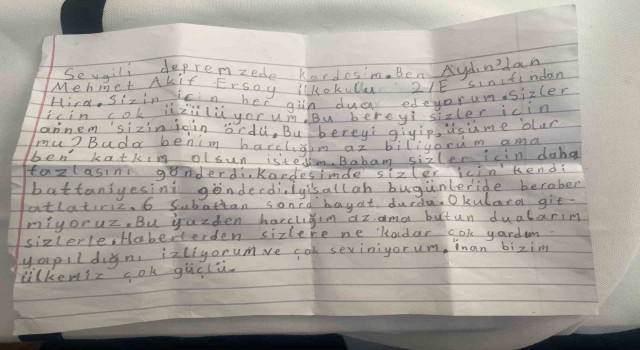 Sevgili depremzede kardeşim. Ben Aydın'dan
Mehmet Akif Ersoy ilkokulu 2/E sınıfından
Hira. Sizin için her gün dua ediyorum. Sizler
için çok üzülüyorum. Bu bereyi sizler için
annem sizin için ördü. Bu bereyi giyip, üşüme olur
mu? Buda benim harçlığım az biliyorum ama
ben katkım olsun istedim. Babam sizler için daha
fazlasını gönderdi. Kardeşimde sizler için kendi
battaniyesini gönderdi. İyişallah bugünleride beraber
atlatırız. 6 Şubattan sonra hayat durdu. Okulara git-
miyoruz. Bu yüzden harçlığım az ama bütün dualarım
sizlerle. Haberlerden sizlere ne kadar çok yardım
yapıldığnı izliyorum ve çok seviniyorum. İnan bizim
ülkemiz çok güçlü.